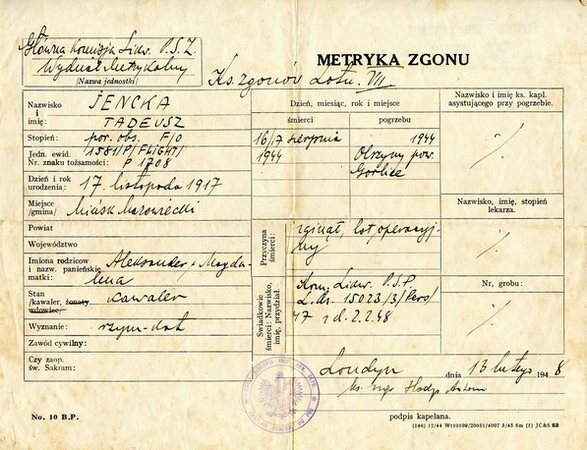 Główna Komisja Likw. P.S.Z.
Wydział Metrykalny
/Nazwa jednostki/
METRYKA ZGONU
Ks. zgonów Lotn. III.
Nazwisko i imię: JENCKA TADEUSZ
Stopień: por. obs. F/O
Jedn. ewid. 1581/P/FLIGHT/
Nr. znaku tożsamości: P 1708
Dzień i rok urodzenia: 17. listopada 1917
Miejsce /gmina/ Mińsk Mazowiecki
Powiat
Województwo
Imiona rodziców i nazw. panieńskie matki: Aleksander, Magdalena
Stan /kawaler, żonaty, wdowiec/ kawaler
Wyznanie: rzym-kat
Zawód cywilny:
Czy zaop. św. Sakram:
No. 10 B.P.
Dzień, miesiąc, rok i miejsce
śmierci
pogrzebu
16/7 sierpnia 1944
1944
Olszyny pow. Gorlice
Przyczyna śmierci:
zginął, lot operacyjny
Świadkowie śmierci: Nazwisko, imię, przydział.
Kom. Likw. P.S.P.
L.dz. 15023/3/Pers/
47 z d. 2.2.48
Nazwisko i imię ks. kapl. asystującego przy pogrzebie.
Nazwisko, imię, stopień lekarza.
Nr. grobu:
Londyn dnia 13 lutego 1948
podpis kapelana.
(146) 12/44 Wt10109/20051/4007 5/45 5m (1) JC&S 52